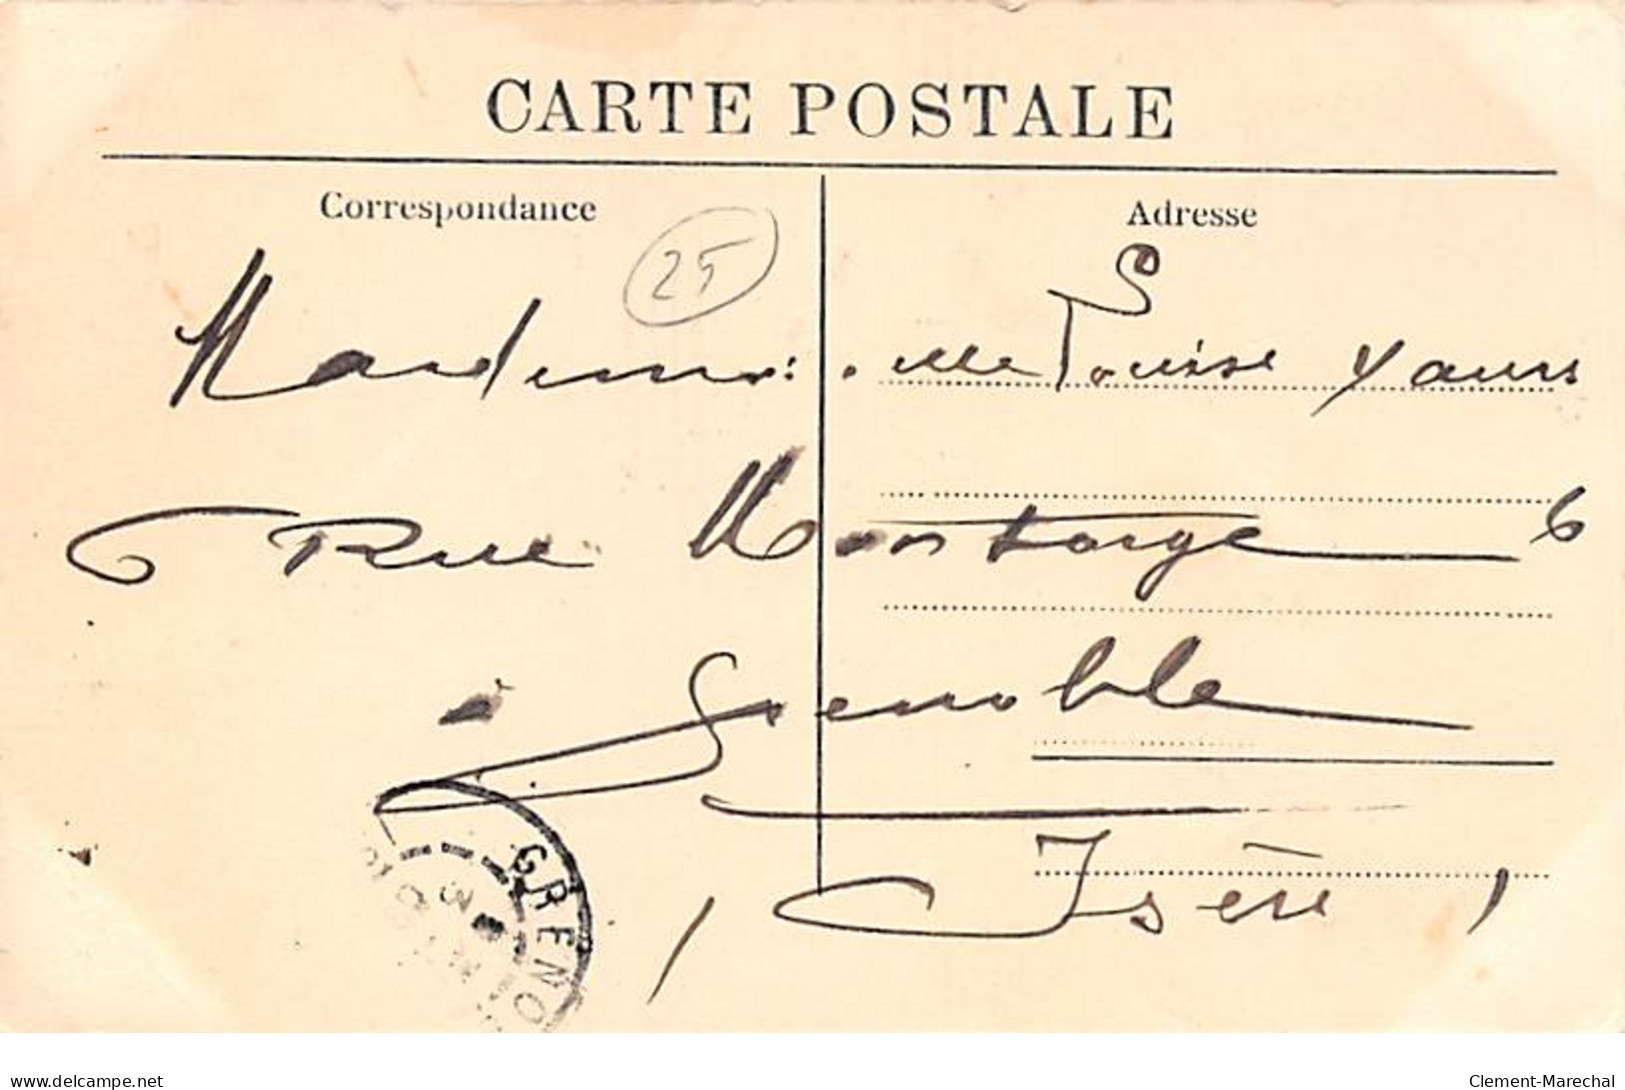 CARTE POSTALE
Correspondance
Adresse
25
Mademoi-elle Louise
Rue Montorge 6
à Grenoble
Isère
GRENO
delcampe.net
Clement-Marechal